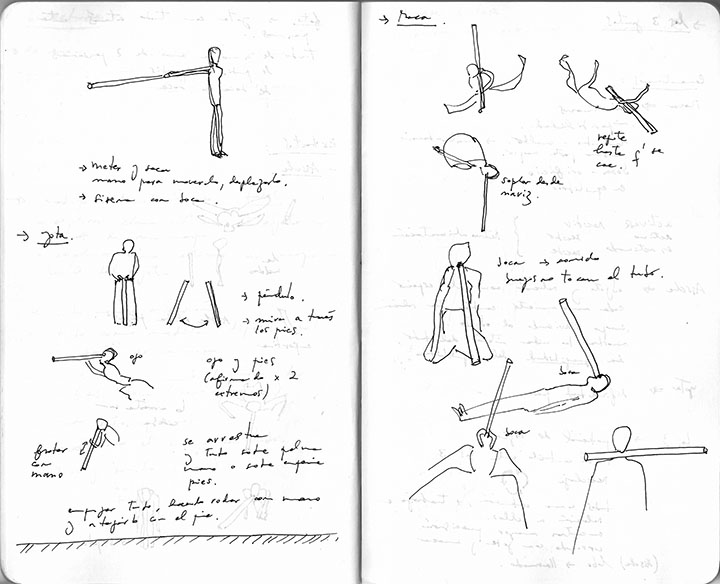 → meter y saca
mano para moverlo, desplazarlo.
→ Sirena con boca.
→ Jota.
→ péndulo.
→ mira a través
los pies.
ojo
ojo y pies
(afirmado x 2
extremos)
frotar
con
mano
se arrastra
y tubo sobre palma
mano o sobre empeine
pies.
empujar tubo, hacerlo rodar con mano
y atajarlo con el pie.
→ Maca.
repite
hasta q' se
cae.
soplar desde
nariz.
boca → sonido
no tocan el tubo.
boca
boca